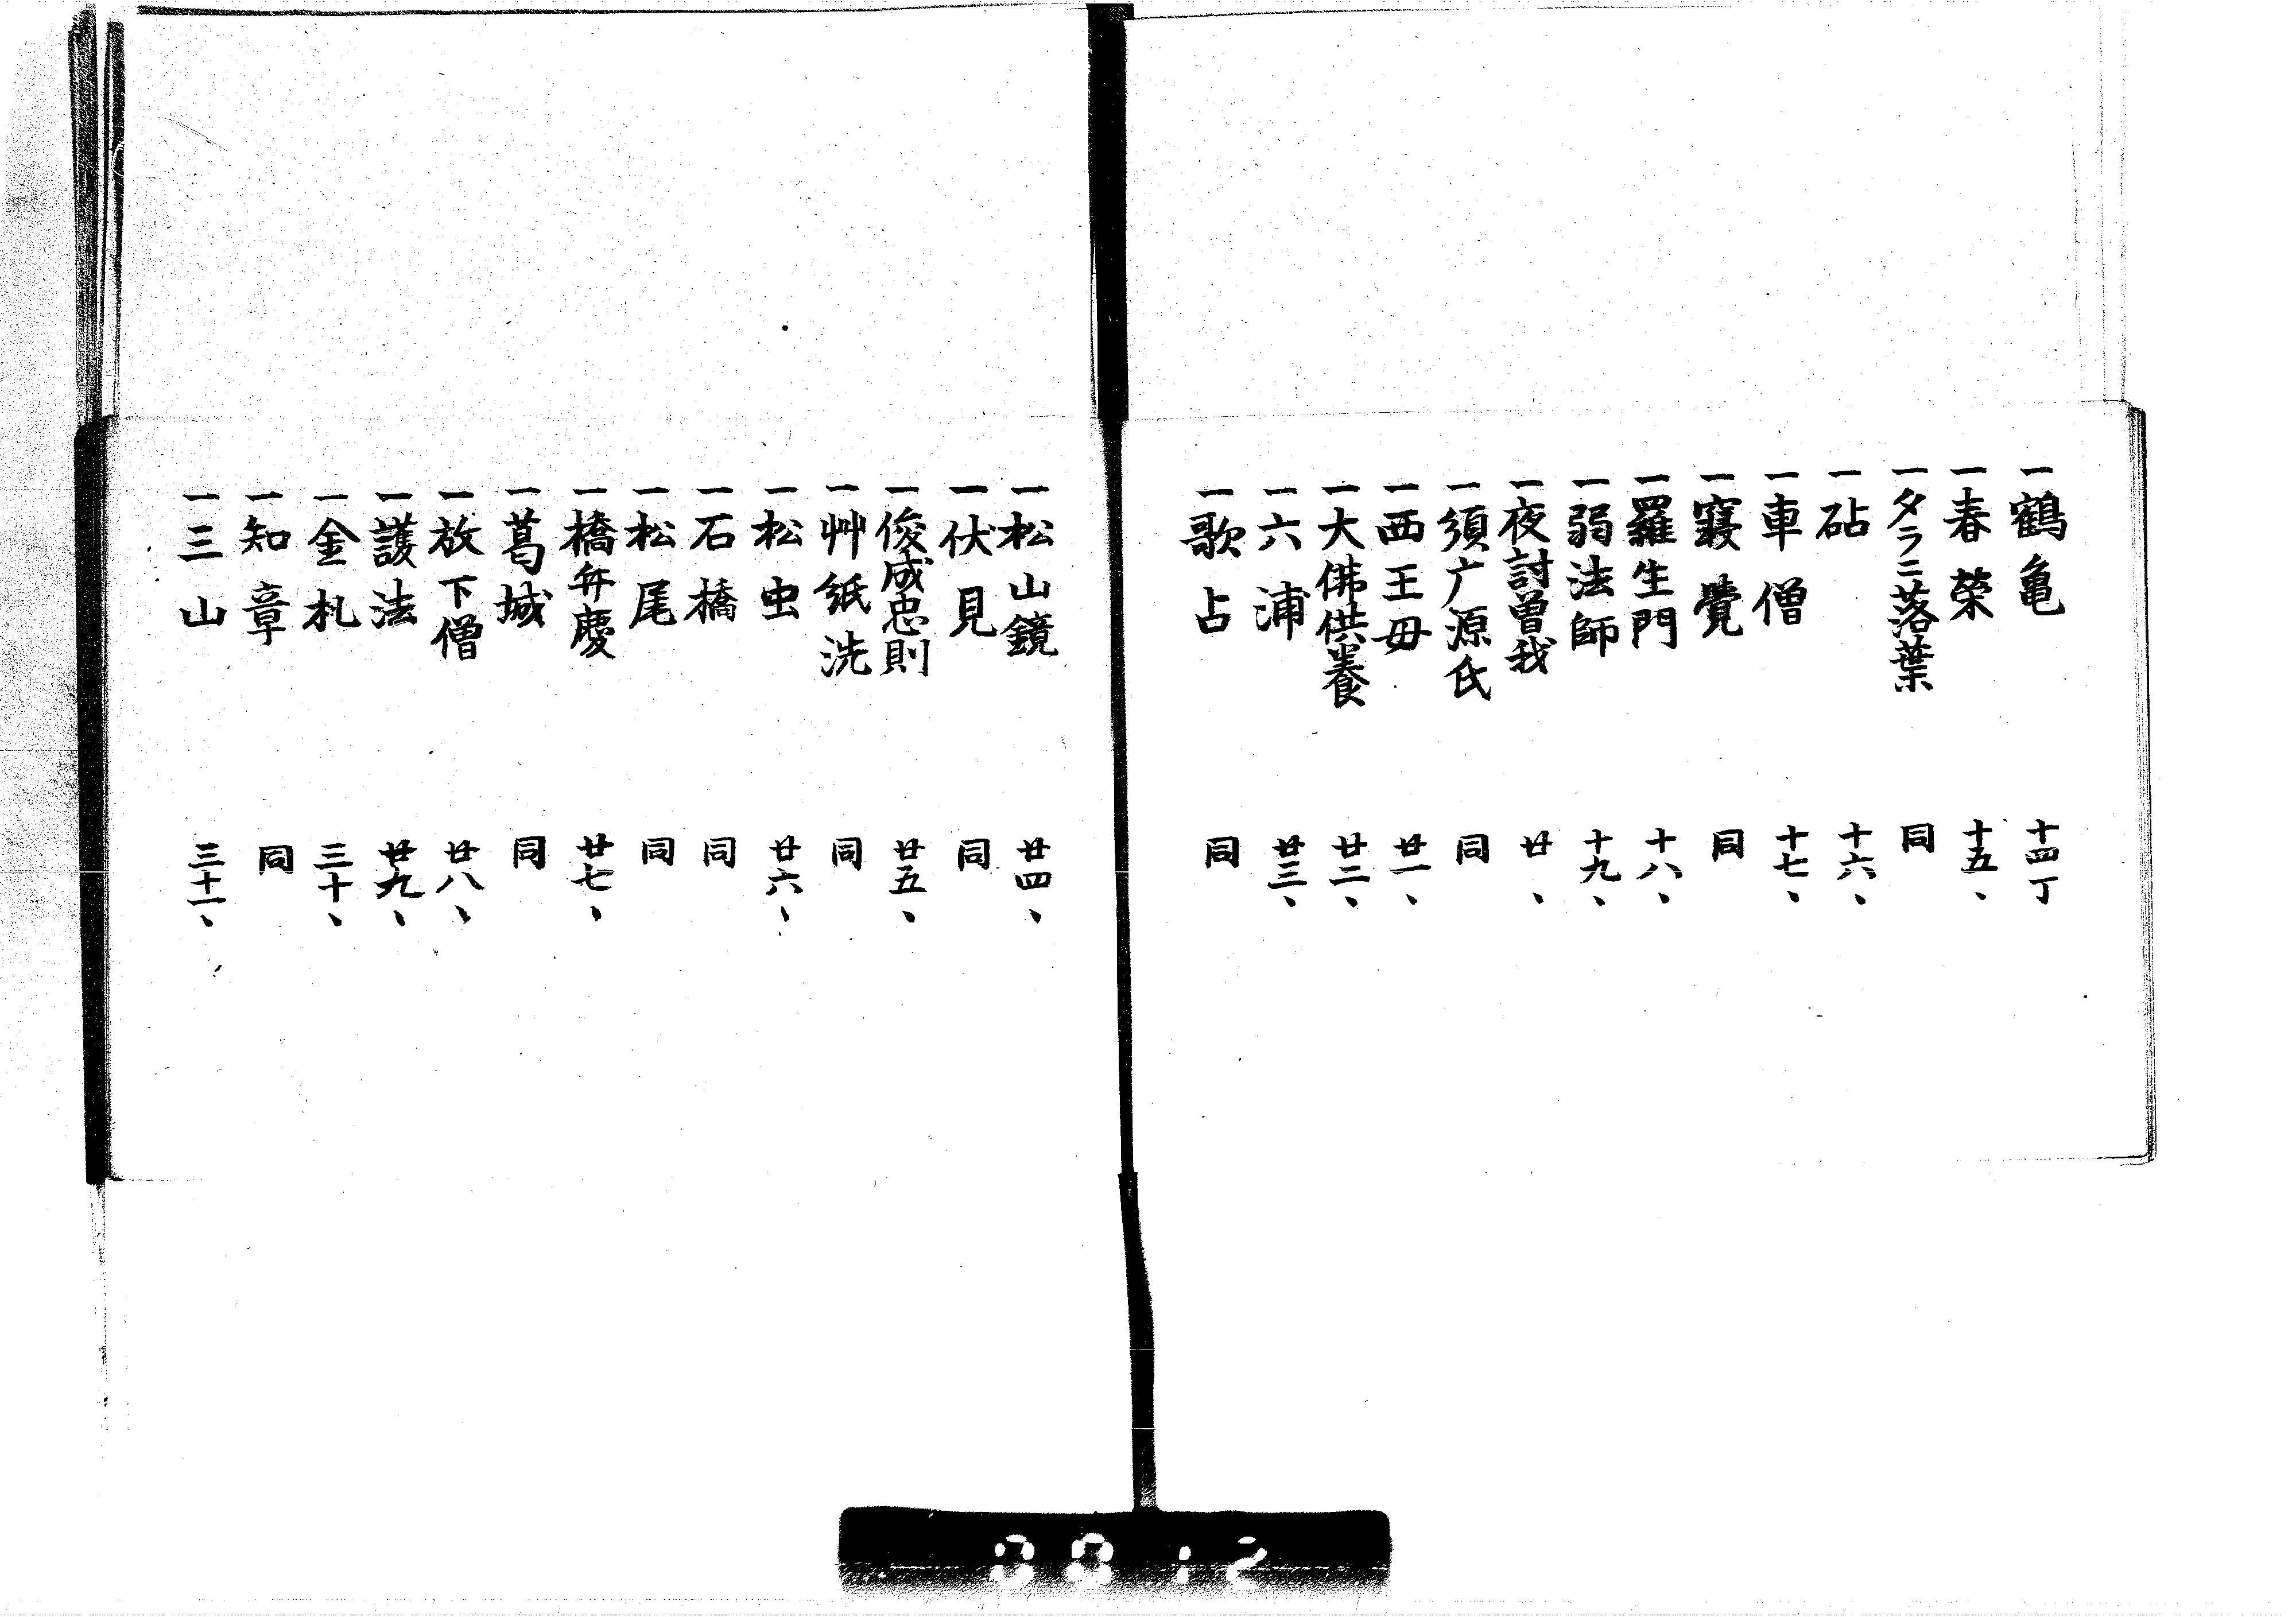 一鶴亀　十四丁
一春榮　十五、
一タラニ落葉　同
一砧　十六、
一車僧　十七、
一寢覺　同
一羅生門　十八、
一弱法師　十九、
一夜討曽我　廿、
一須广源氏　同
一西王母　廿一、
一大佛供養　廿二、
一六浦　廿三、
一歌占　同
一松山鏡　廿四、
一伏見　同
一俊成忠則　廿五、
一艸紙洗　同
一松虫　廿六、
一石橋　同
一松尾　同
一橋弁慶　廿七、
一葛城　同
一放下僧　廿八、
一護法　廿九、
一金札　三十、
一知章　同
一三山　三十一、